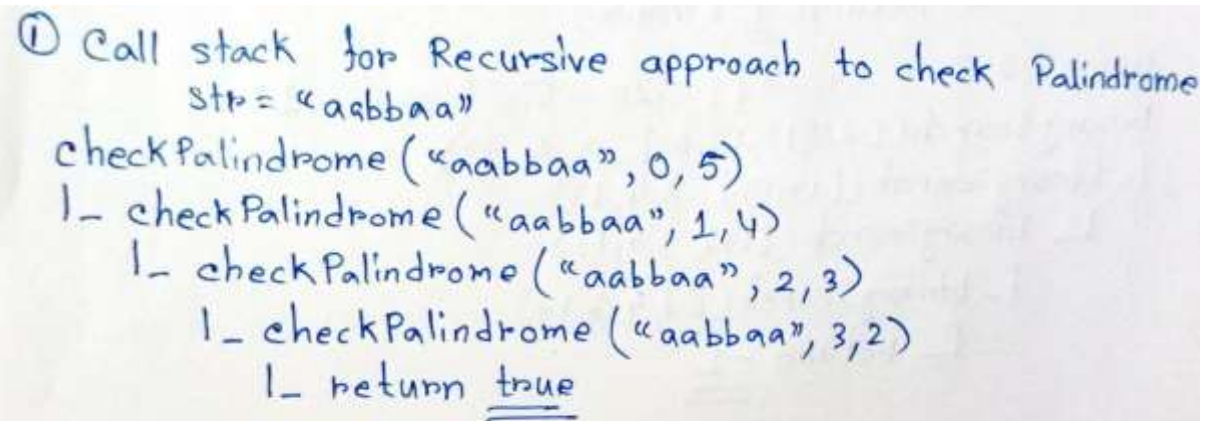 ① Call stack for Recursive approach to check Palindrome
str = "aabbaa"
checkPalindrome ("aabbaa", 0, 5)
|_ checkPalindrome ("aabbaa", 1, 4)
|_ checkPalindrome ("aabbaa", 2, 3)
|_ checkPalindrome ("aabbaa", 3, 2)
|_ return true